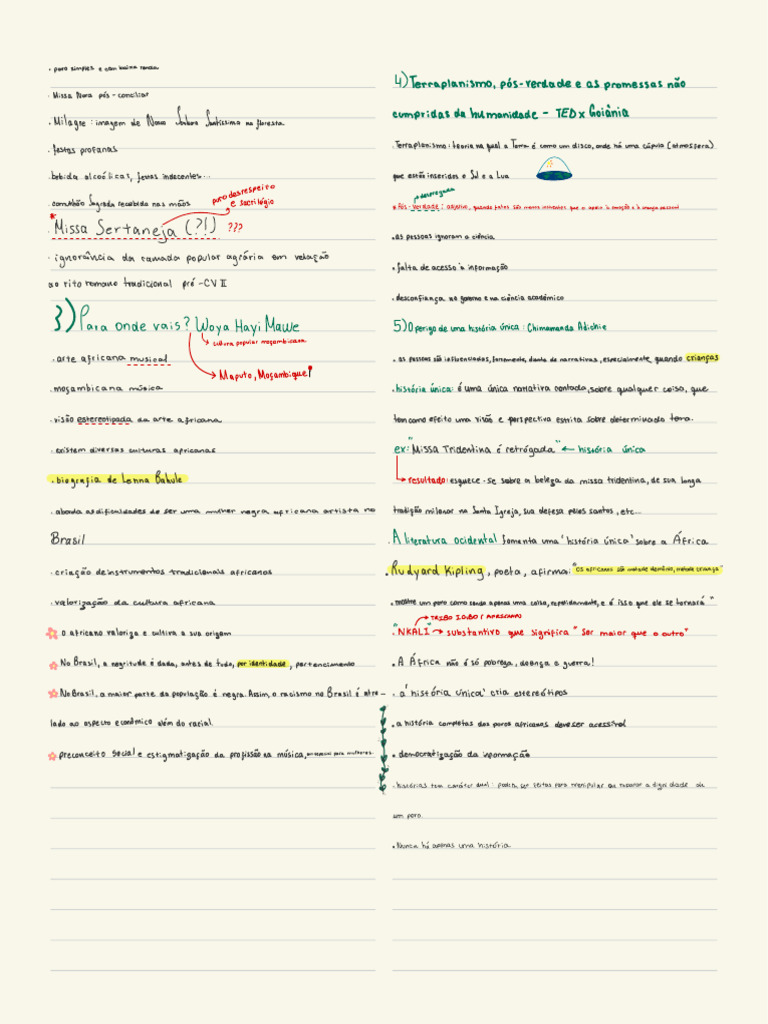 . povo simples e com baixa renda
. Missa Nova pós-conciliar
. Milagre: imagem de Nossa Senhora Santíssima na floresta
. festas profanas
. bebida alcoólicas, festas indecentes...
. comunhão Sagrada recebida nas mãos
puro desrespeito
e sacrilégio
* Missa Sertaneja (?!) ???
. ignorância da camada popular agrária em relação
ao rito romano tradicional pré-CVII
3) Para onde vais? Woya Hayi Mawe
→ cultura popular moçambicana
→ Maputo, Moçambique!
. arte africana musical
. moçambicana música
. visão estereotipada da arte africana
. existem diversas culturas africanas
. biografia de Lenna Bahule
. aborda as dificuldades de ser uma mulher negra africana artista no
Brasil
. criação de instrumentos tradicionais africanos
. valorização da cultura africana
o africano valoriza e cultiva a sua origem
No Brasil, a negritude é dada, antes de tudo, por identidade, pertencimento
No Brasil, a maior parte da população é negra. Assim, o racismo no Brasil é atre-
lado ao aspecto econômico além do racial.
preconceito social e estigmatização da profissão na música, em especial para mulheres.
4) Terraplanismo, pós-verdade e as promessas não
cumpridas da humanidade - TEDx Goiânia
. Terraplanismo: teoria na qual a Terra é como um disco, onde há uma cúpula (atmosfera)
que estão inseridos o Sol e a Lua
. Pós-verdade: adjetivo, quando fatos são menos influentes que o apelo à emoção e à crença pessoal
. as pessoas ignoram a ciência
. falta de acesso à informação
. desconfiança no governo e na ciência acadêmica
5) O perigo de uma história única: Chimamanda Adichie
. as pessoas são influenciadas, fortemente, diante de narrativas, especialmente, quando crianças
. história única: é uma única narrativa contada, sobre qualquer coisa, que
tem como efeito uma visão e perspectiva estrita sobre determinado tema.
ex: "Missa Tridentina é retrógada" ← história única
→ resultado: esquece-se sobre a beleza da missa tridentina, de sua longa
tradição milenar na Santa Igreja, sua defesa pelos santos, etc...
. A literatura ocidental fomenta uma 'história única' sobre a África
. Rudyard Kipling, poeta, afirma: "os africanos são metade demônio, metade criança"
. "mostre um povo como sendo apenas uma coisa, repetidamente, e é isso que ele se tornará"
→ TRIBO IGBO (AFRICANA)
. "NKALI" → substantivo que significa "ser maior que o outro"
. A África não é só pobreza, doença e guerra!
. a 'história única' cria estereótipos
. a história completa dos povos africanos deve ser acessível
. democratização da informação
. histórias tem caráter dual: podem ser feitas para manipular ou reparar a dignidade de
um povo.
. Nunca há apenas uma história.